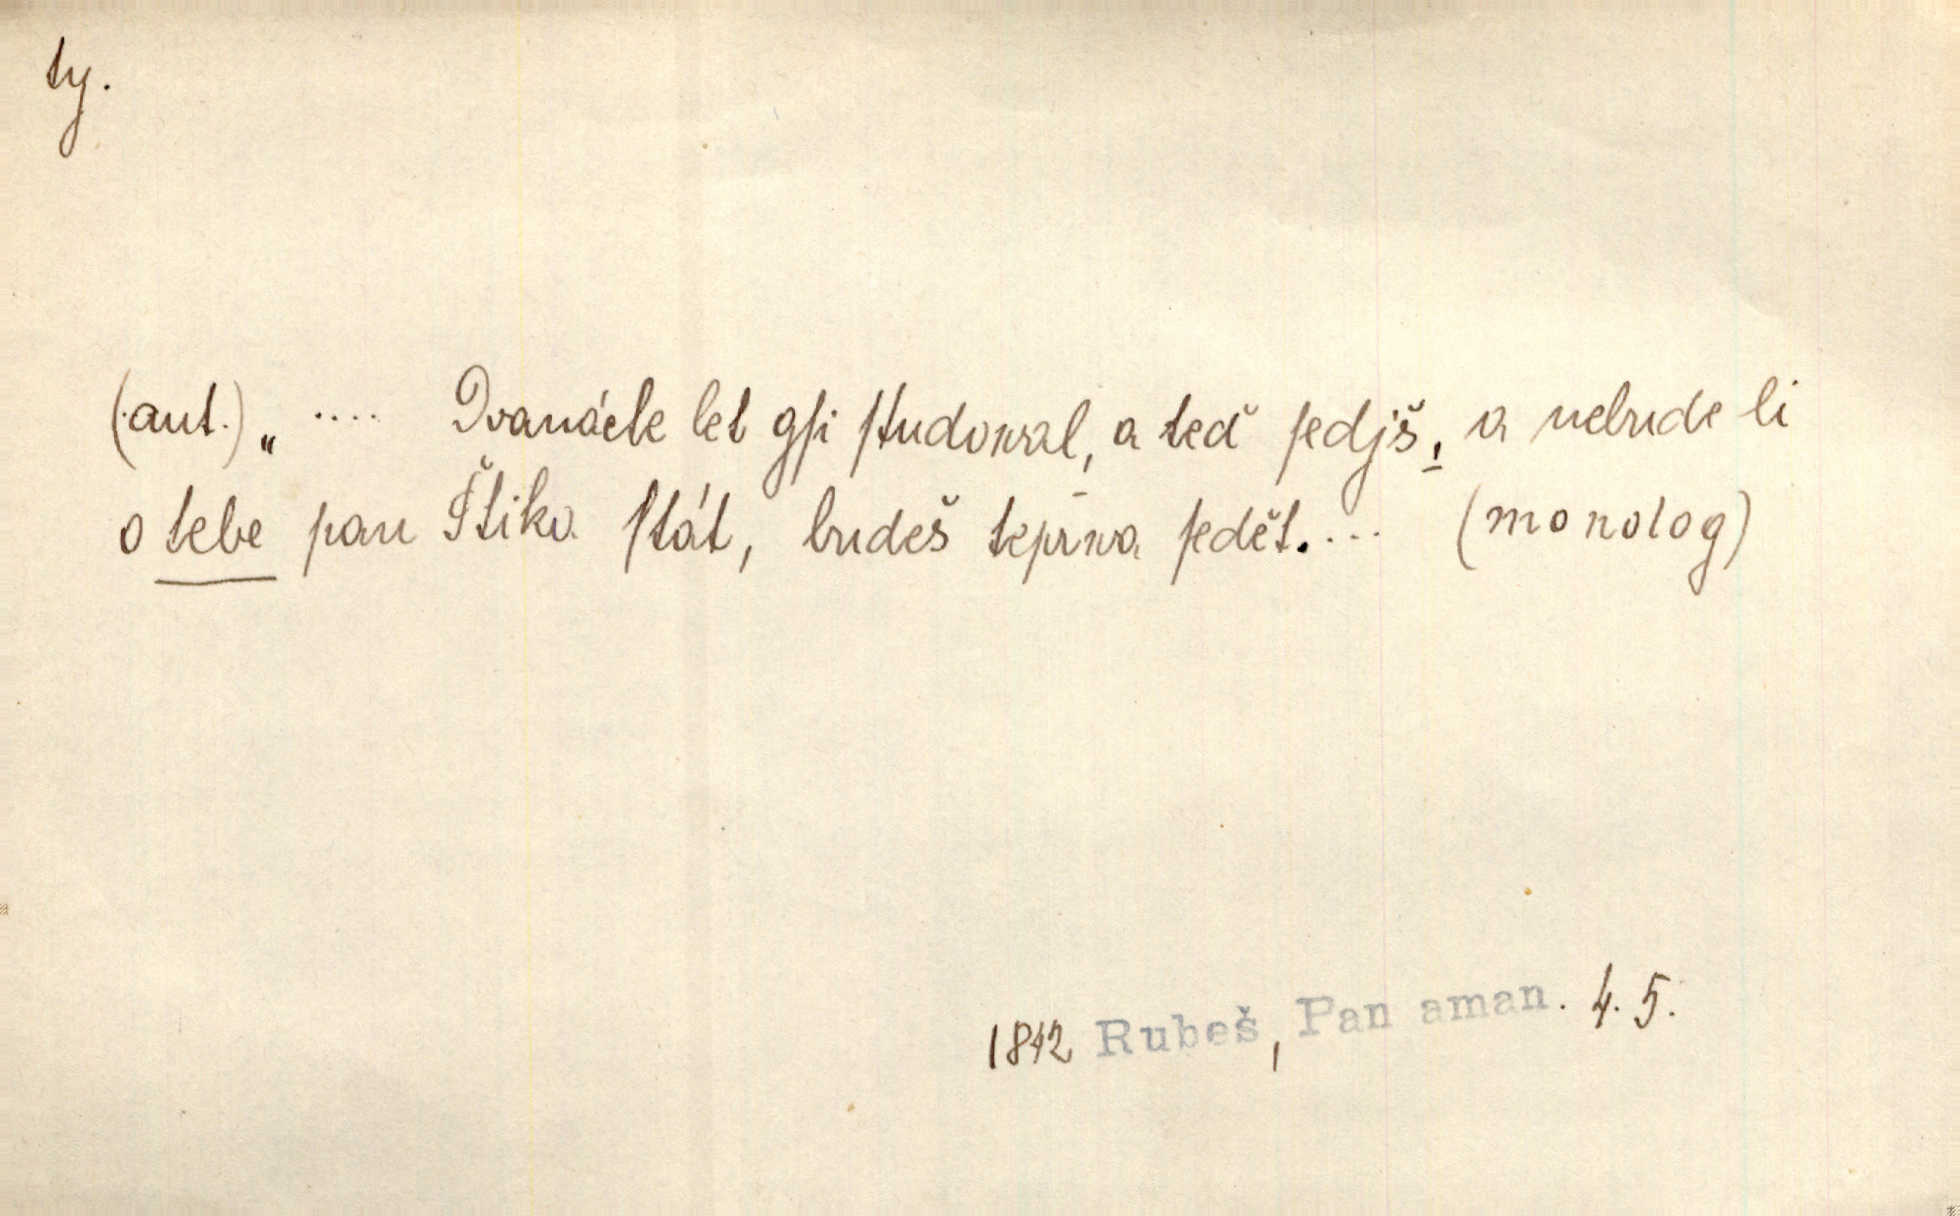 ty.
(aut.) „ .... Dvanácte let gſi ſtudowal, a teď ſedjš, a nebude li
o tebe pan Štika ſtát, budeš teprwa ſedět.... (monolog)
1842 Rubeš, Pan aman. 4. 5.